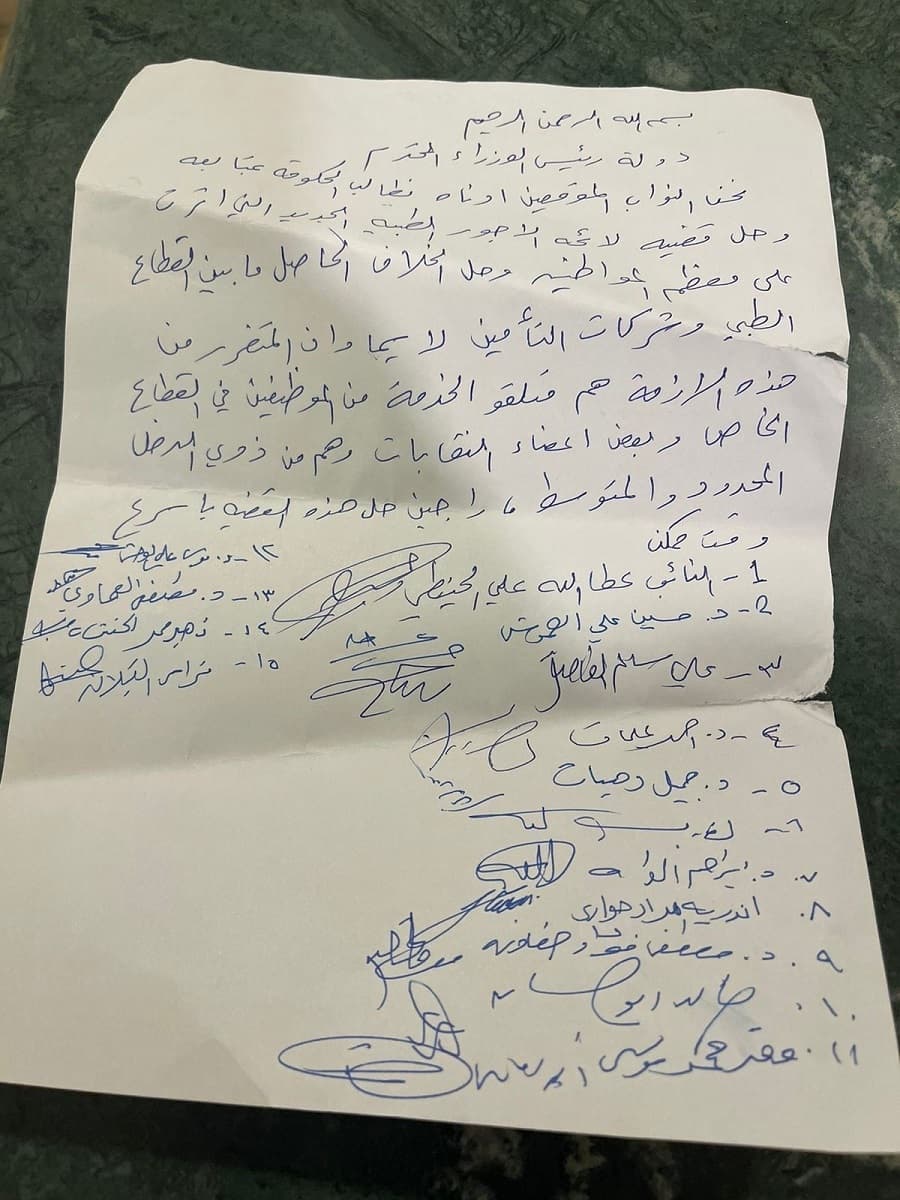 بسم الله الرحمن الرحيم
دولة رئيس الوزراء المحترم
نحن النواب الموقعين ادناه نطالب الحكومة بمتابعه
وحل قضيه لائحه الاجور الطبيه الجديده التي اثرت
على معظم المواطنين وحل الخلاف الحاصل ما بين القطاع
الطبي وشركات التأمين لا سيما وان المتضرر من
هذه الازمة هم متلقو الخدمة من الموظفين في القطاع
الخاص وبعض اعضاء النقابات وهم من ذوي الدخل
المحدود والمتوسط، راجين حل هذه القضيه باسرع
وقت ممكن
1- النائب عطا الله علي الحنيطي
2- د. حسين علي العموش
٣- علي سليم
٤- د. احمد عليمات
٥- د. جميل دهيسات
٦-
٧. د. ابراهيم
٨. اندريه مراد حواري
٩. د. مصطفى فؤاد خصاونه
١٠. خالد ابو
١١. محمد موسى
١٢- د. موسى علي
١٣- د. مصطفى العماوي
١٤- زهير محمد
١٥- فراس القبلان